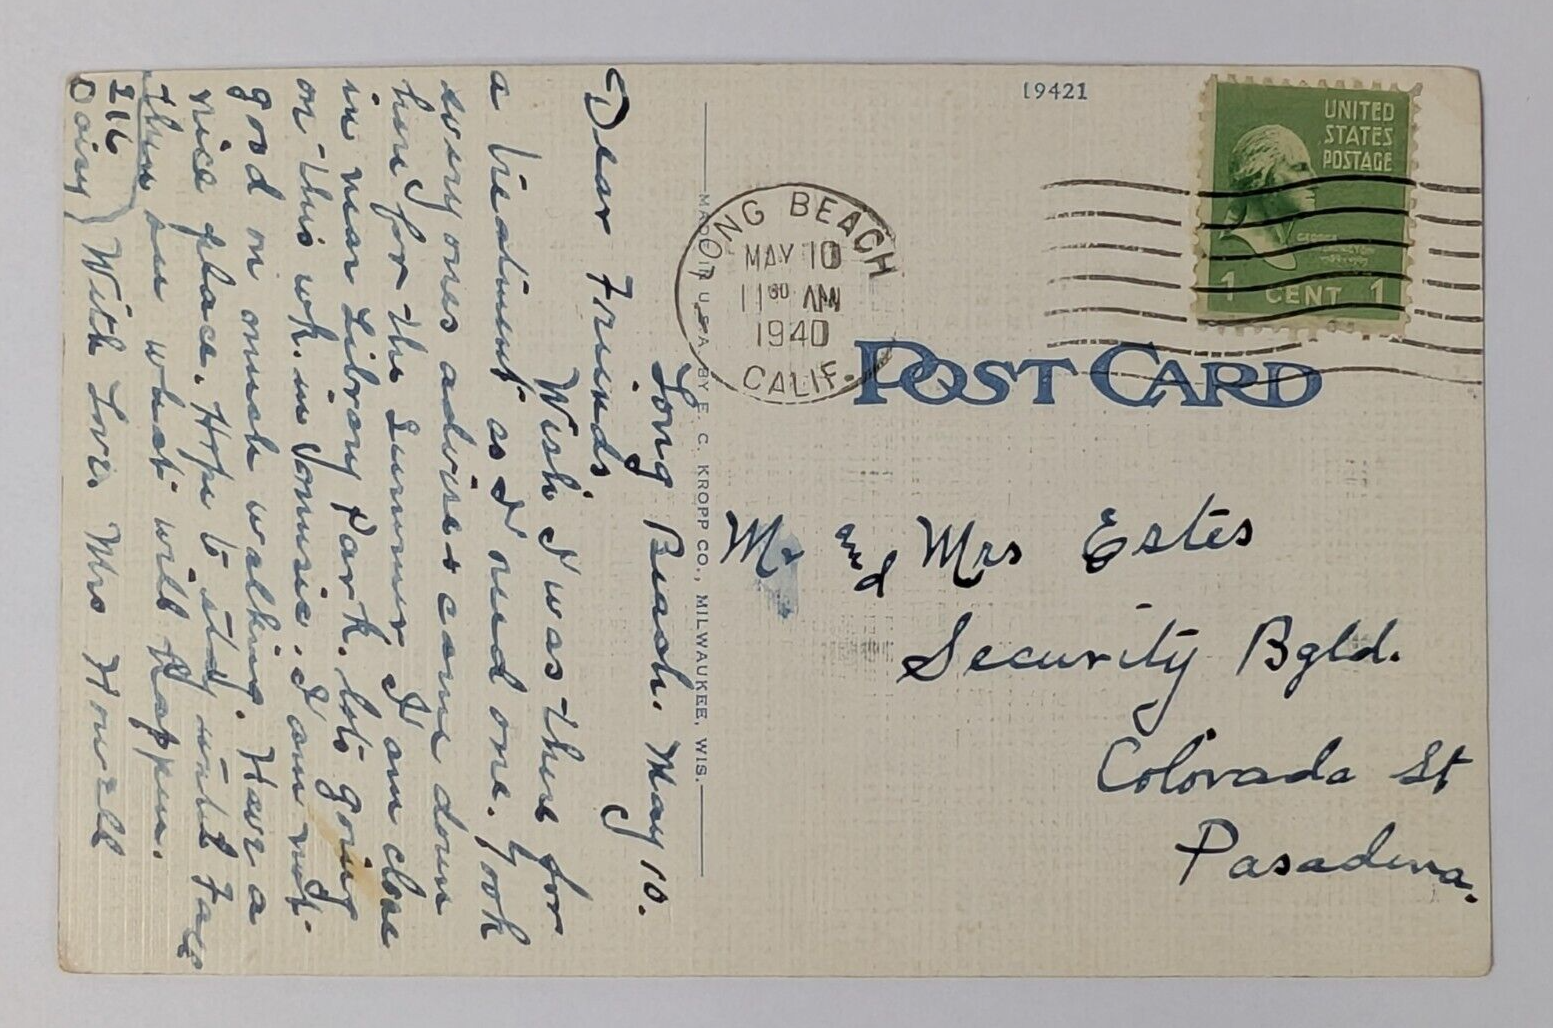 19421
UNITED
STATES
POSTAGE
1 CENT 1
LONG BEACH
MAY 10
11 30 AM
1940
CALIF.
POST CARD
MADE IN U.S.A. BY E. C. KROPP CO., MILWAUKEE, WIS.
Mr and Mrs Estes
Security Bgld.
Colorado St
Pasadena.
Long Beach. May 10.
Dear Friends
Wish I was there for
a treatment as I need one. Took
every ones advise & come down
here for the Summer I am close
in near Library Park. lots going
on this wk. in music. I am not
good on much walking. Have a
nice place. Hope to stay until Fall
then see what will happen.
216
Daisy With Love Mrs Howell